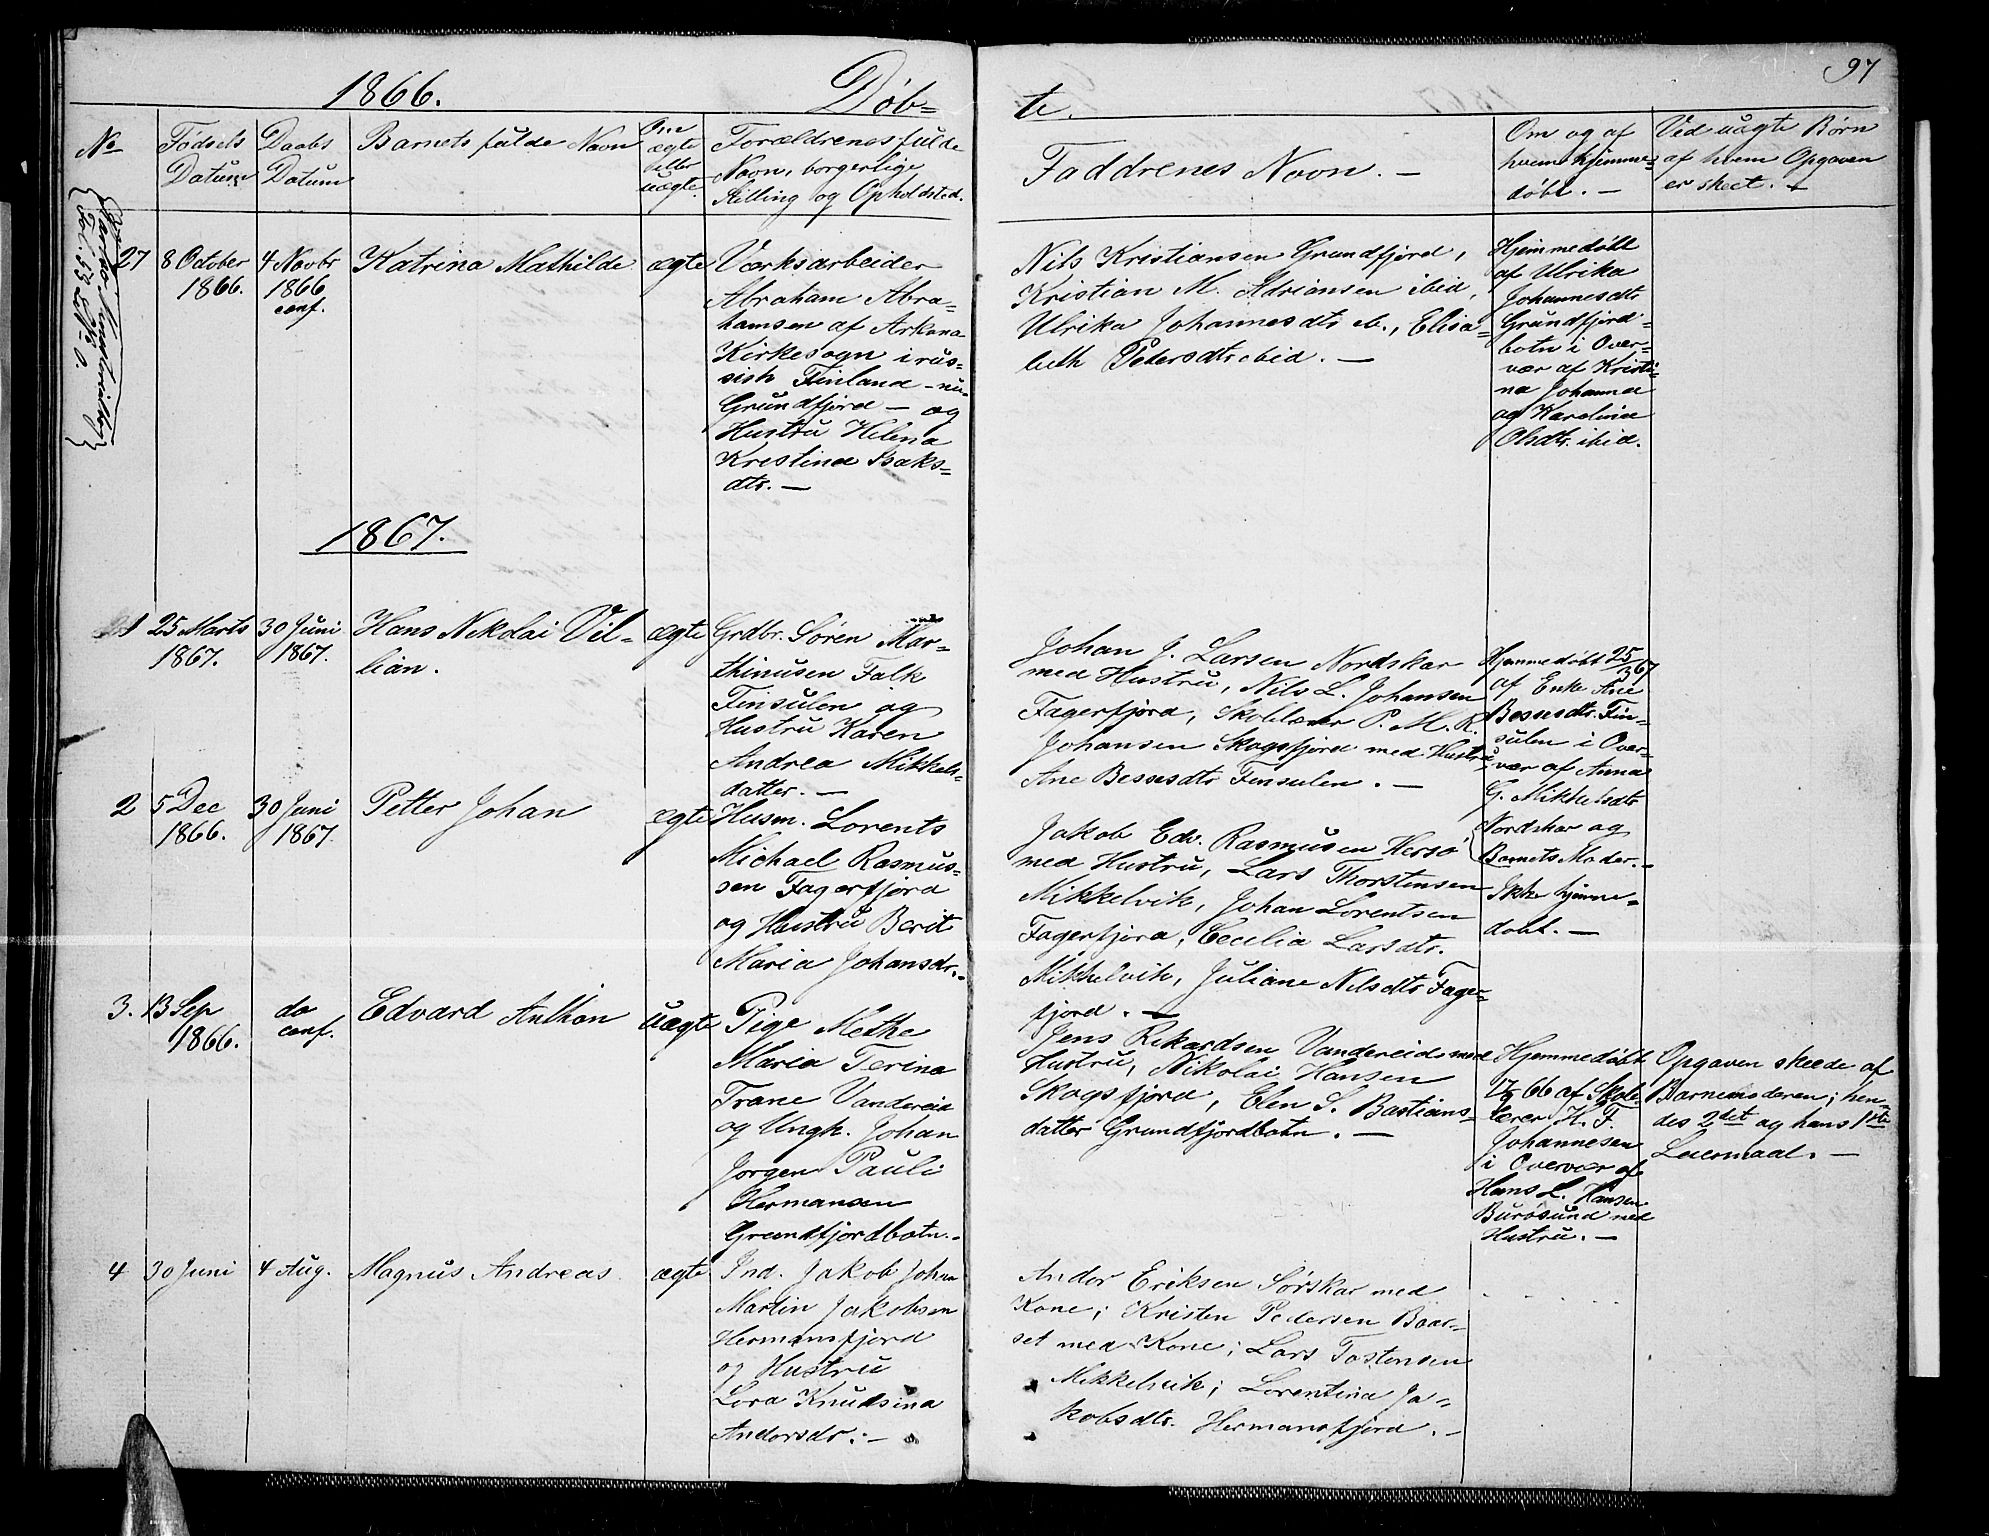 1866.
Døb=
te.
97
No
Fødsels
Datum
Daabs
Datum
Barnets fulde Navn
Om
ægte
eller
uægte.
Forældrenes fulde
Navn, borgerlige
Stilling og Opholdsted.
Faddrenes Navn. —
Om og af
hvem hjemme-
døbt. —
Ved uægte Børn
af hvem Opgaven
er skeet. —
27
8 October
1866.
4 Novbr
1866
conf.
Katrina Mathilde
ægte
Værksarbeider
Abraham Abra=
hamsen af
Kirkesogn i rus=
sisk Finland - nu
Grundfjord — og
Hustru Helena
Krestina Isaks=
dtr. —
Nils Kristiansen Grundfjord,
Kristian M. Adriansen ibid,
Ulrika Johannesdtr ib., Elisa=
beth Pedersdtr ibid. —
Hjemmedøbt
af Ulrika
Johannesdtr
Grundfjord=
botn i Over=
vær af Kristi=
na Johanna
og Karolina
Olsdtr. ibid.
1867.
1
25 Marts
1867.
30 Juni
1867.
Hans Nikolai Vil=
lian.
ægte
Grdbr. Søren Mar=
thinusen Falk
Finsulen og
Hustru Karen
Andrea Mikkels=
datter. —
Johan J. Larsen Nordskar
med Hustru, Nils L. Johansen
Fagerfjord, Skolelærer P. M. R.
Johansen Skogsfjord med Hustru,
Ane Bessesdtr Finsulen. —
Hjemmedøbt 25/3 67
af Enke Ane
Bessesdtr. Fin=
sulen i Over=
vær af Anna
G. Mikkelsdtr
Nordskar og
Barnets Moder. —
2
5 Dec
1866.
30 Juni
1867.
Petter Johan
ægte
Husm. Lorents
Michael Rasmus=
sen Fagerfjord
og Hustru Berit
Maria Johansdr. —
Jakob Edv. Rasmusen Hersø
med Hustru, Lars Thorstensen
Mikkelvik, Johan Lorentsen
Fagerfjord, Cecilia Larsdtr.
Mikkelvik, Juliane Nilsdtr Fager=
fjord. —
Ikke hjemme=
døbt. —
3.
13 Sep
1866.
do
conf.
Edvard Anthon
uægte
Pige Methe
Maria Terina
Trane Vandereid
og Ungk. Johan
Jørgen Pauli
Hermansen
Grundfjordbotn. —
Jens Rikardsen Vandereid med
Hustru, Nikolai Hansen
Skogsfjord, Elen S. Bastians=
datter Grundfjordbotn. —
Hjemmedøbt
17/9 66 af Skole=
lærer H. F.
Johannesen
i Overvær af
Hans L. Hansen
Burøsund med
Hustru. —
Opgaven skeede af
Barnemoderen; hen=
des 2det og hans 1ste
Leiermaal. —
4
30 Juni
4 Aug.
Magnus Andreas
ægte
Ind. Jakob Johan
Martin Jakobsen
Hermansfjord
og Hustru
Lora Knudsina
Andorsdr. —
Andor Eriksen Sørskar med
Kone; Kristen Pedersen Baar=
set med Kone; Lars Tostensen
Mikkelvik; Lorentina Ja=
kobsdtr. Hermansfjord. —